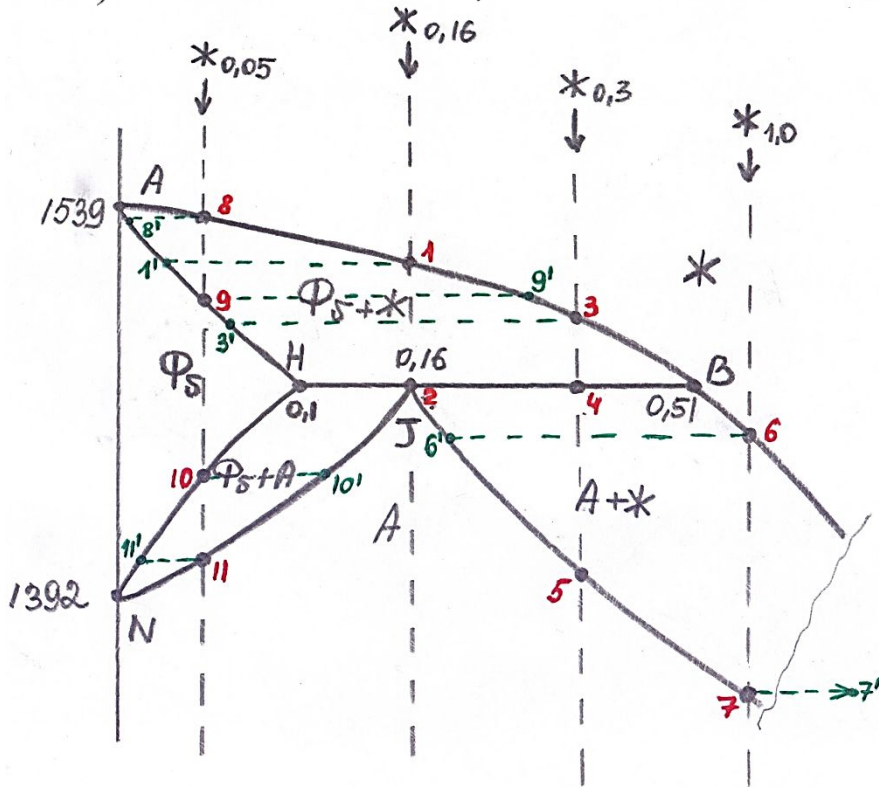 Ж0,05
Ж0,16
Ж0,3
Ж1,0
1539
A
8
8'
1'
1
9
Ф5+Ж
9'
3
Ж
3'
Ф5
H
0,16
B
0,1
2
4
0,51
J
6'
6
10
Ф5+A
10'
A
A+Ж
11'
11
5
1392
N
7
7'